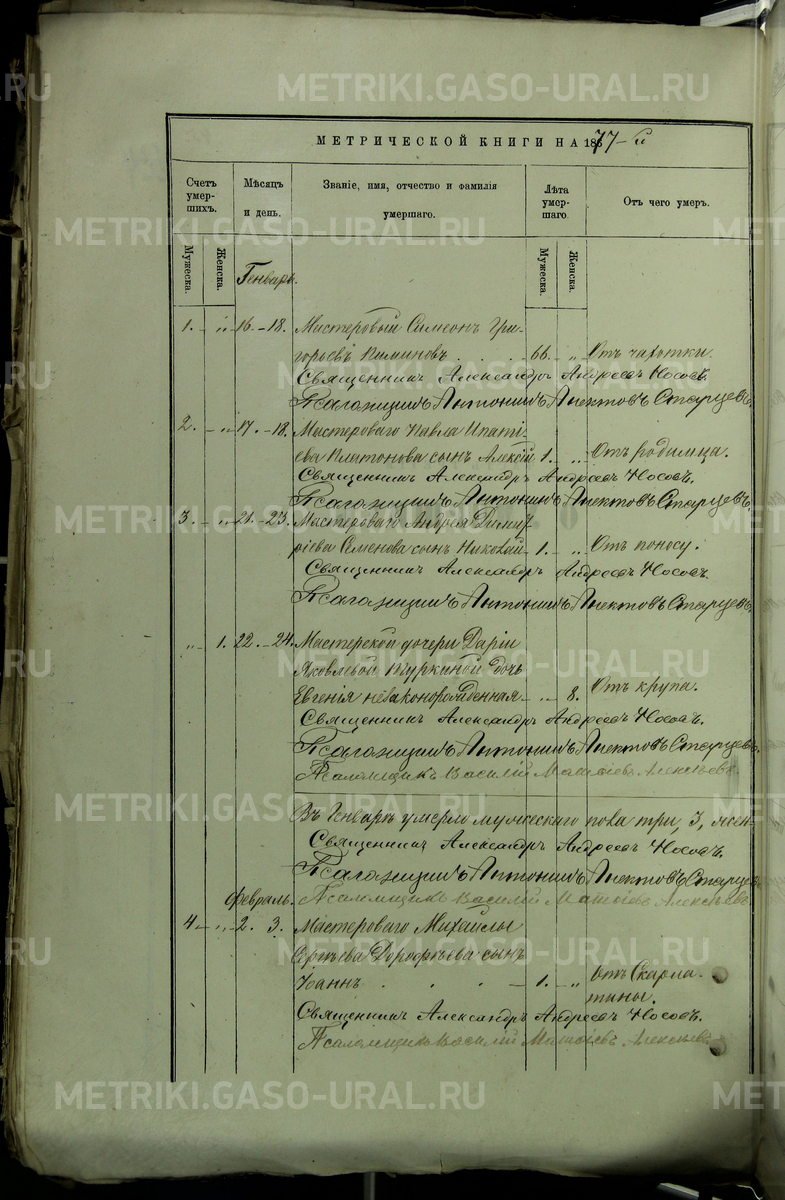 МЕТРИЧЕСКОЙ КНИГИ НА 1877-й
Счетъ умер-шихъ.
Мѣсяцъ и день.
Званіе, имя, отчество и фамилія умершаго.
Лѣта умер-шаго.
Отъ чего умеръ.
Мужеска.
Женска.
Мужеска.
Женска.
Генварь.
1. – „ 16.–18. Мастеровый Симеонъ Гри-
горьевъ . . . – 66. – „ Отъ чахотки.
Священникъ Александръ Андреевъ Носовъ.
Псаломщикъ Антонинъ Старцевъ.
2. – „ 17.–18. Мастероваго Павла Ипаті-
ева Платонова сынъ Алексій 1. „ Отъ родимца.
Священникъ Александръ Андреевъ Носовъ.
Псаломщикъ Антонинъ Старцевъ.
3. – „ 21.–23. Мастероваго Андрея Димит-
ріева Семенова сынъ Николай – 1. – „ Отъ поносу.
Священникъ Александръ Андреевъ Носовъ.
Псаломщикъ Антонинъ Старцевъ.
„ – 1. 22.–24. Мастерской дочери Даріи
Яковлевой дочь
Евгенія незаконорожденная – „ – 8. Отъ крупа.
Священникъ Александръ Андреевъ Носовъ.
Псаломщикъ Антонинъ Старцевъ.
Псаломщикъ Василій Алексѣевъ.
Въ Генварѣ умерло мужескаго пола три, 3, жен-
Священникъ Александръ Андреевъ Носовъ.
Псаломщикъ Антонинъ Старцевъ.
Февраль. Псаломщикъ Василій Алексѣевъ
4. – „ 2. 3. Мастероваго Михаилы
Сергѣева Дорофѣева сынъ
Іоаннъ . . . – 1. – „ Отъ Скарла-
тины.
Священникъ Александръ Андреевъ Носовъ.
Псаломщикъ Василій Алексѣевъ
METRIKI.GASO-URAL.RU